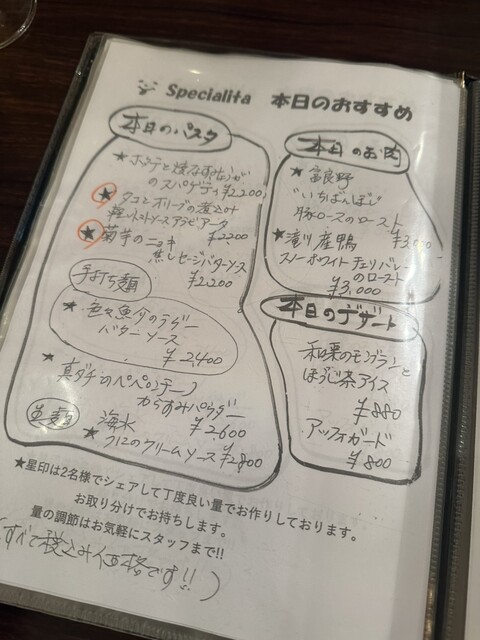 Specialita 本日のおすすめ
本日のパスタ
★ホタテと焼なす
のスパゲティ ¥2,200
★タコとオリーブの煮込み
軽いトマトソースアラビアータ
¥2200
★菊芋のニョキ
焦しセージバターソース
¥2,200
手打ち麺
★色々魚介のラグー
バターソース
¥2,400
★真ダチのペペロンチーノ
からすみパウダー
¥2600
海水
★ウニのクリームソース ¥2800
本日のお肉
★富良野
"いちばんぼし"
豚ロースのロースト
¥3,000
★滝川産鴨
スノーホワイトチェリバレー
のロースト
¥3,000
本日のデザート
和栗のモンブランと
ほうじ茶アイス
¥880
アッフォガード
¥800
★星印は2名様でシェアして丁度良い量でお作りしております。
お取り分けでお持ちします。
量の調節はお気軽にスタッフまで!!
(すべて税込み価格です!!)